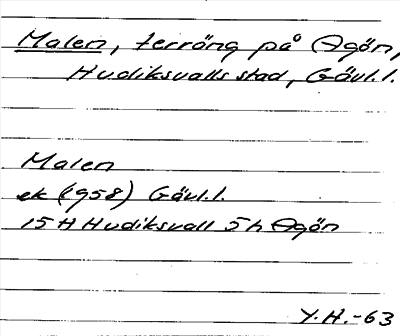 Malen, terräng på Agön,
Hudiksvalls stad, Gävl.l.
Malen
ek (1958) Gävl.l.
15H Hudiksvall 5h Agön
Y.H.-63